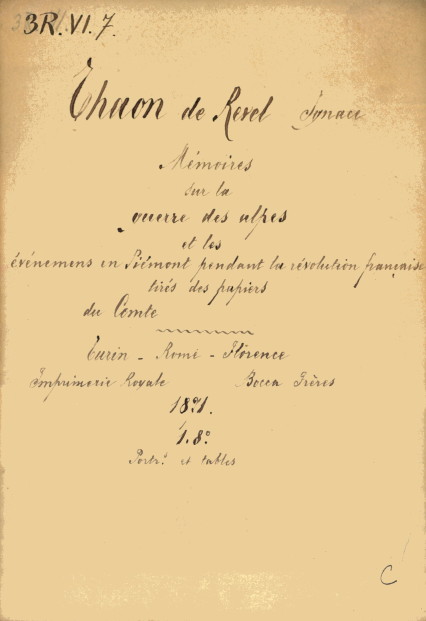 3R. VI. 7.
Thaon de Revel Ignace
Mémoires
sur la
guerre des alpes
et les
événemens en Piémont pendant la révolution française
tirés des papiers
du Comte
Turin - Rome - Florence
Imprimerie Royale Bocca Frères
1871.
1. 8.º
Portr. et tables
C